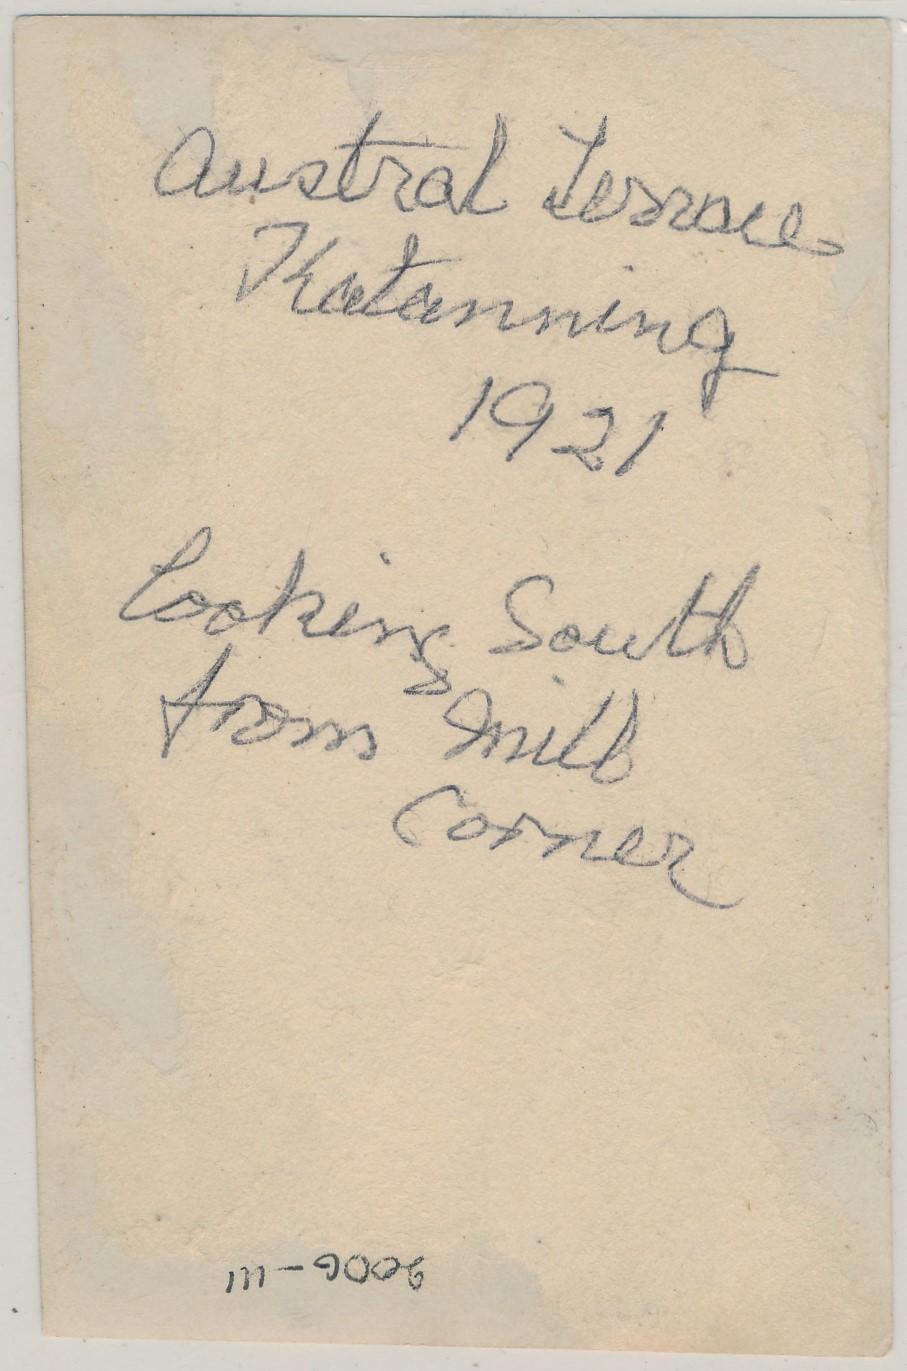 Austral Terrace
Katanning
1921
Looking South
from Mill
Corner
2006-111